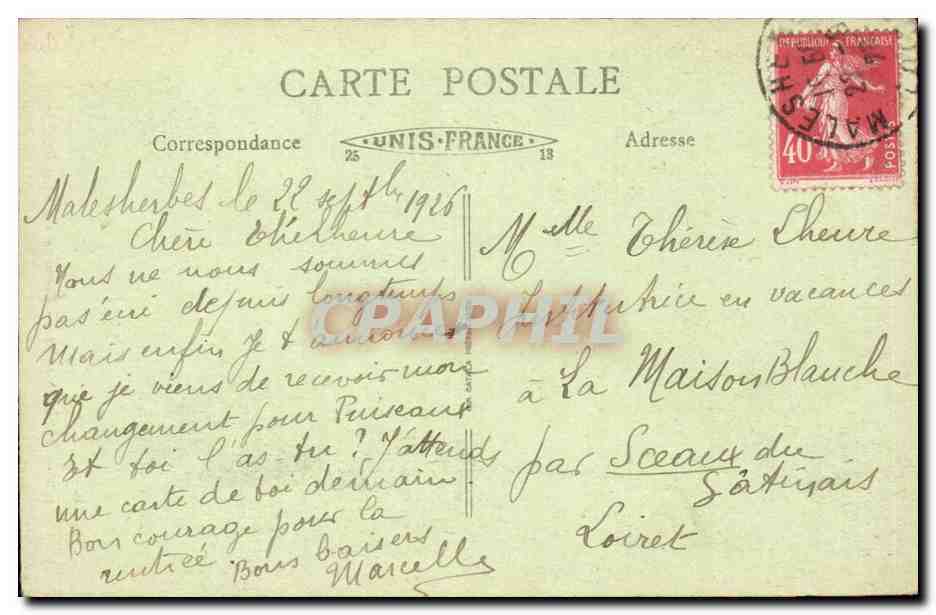 CARTE POSTALE
Correspondance
UNIS·FRANCE·
25 13
Adresse
REPUBLIQUE FRANÇAISE
40
POSTES
MALESHE
22
Malesherbes le 22 septbre 1926
Chère
Nous ne nous sommes
pas écri depuis longtemps
Mais enfin Je t'annonces
que je viens de recevoir mon
changement pour Puiseaux
Et toi l'as tu? J'attends
une carte de toi demain.
Bon courage pour la
rentrée. Bons baisers
Marcelle
Melle Thérèse Lheure
Institutrice en vacances
à La Maison Blanche
par Sceaux du
Gâtinais
Loiret
CPAPHIL